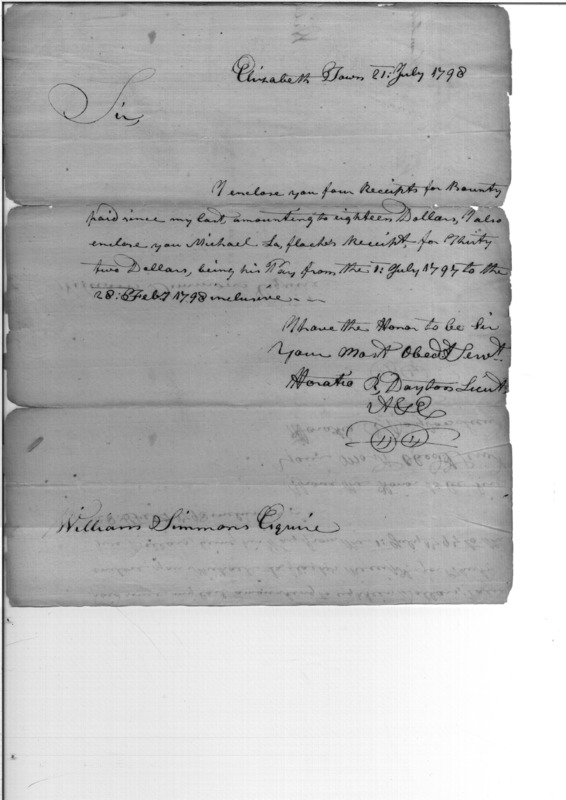 Elizabeth Town 21: July 1798
Sir,
I enclose you four Receipts for Bounty
paid since my last amounting to eighteen Dollars, I also
enclose you Michael Receipt, for Thirty
two Dollars, being his Pay from the 1: July 1797 to the
28: Feb.y 1798 inclusive.
I have the Honor to be Sir
Your Most Obed.t Serv.t
Horatio R, Dayton Lieut.
William Simmons Esquire